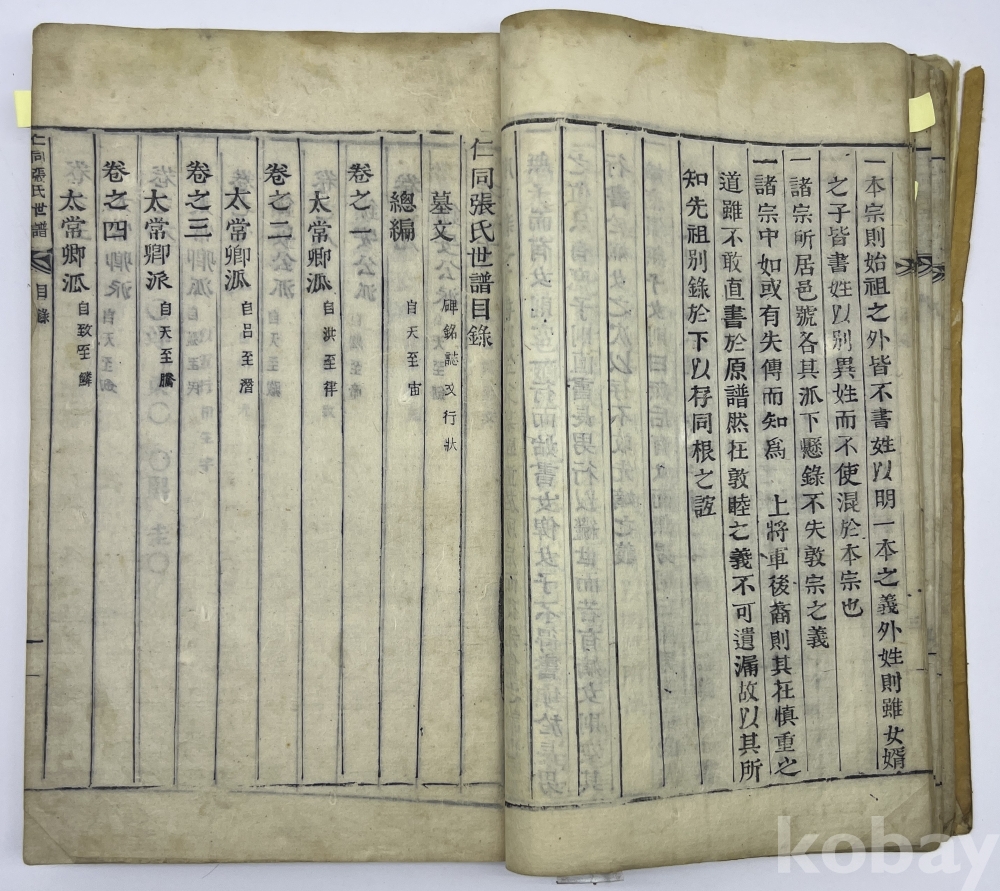 一本宗則始祖之外皆不書姓以明一本之義外姓則雖女婿
之子皆書姓以別異姓而不使混於本宗也
一諸宗所居邑號各其派下懸錄不失敦宗之義
一諸宗中如或有失傳而知爲 上將軍後裔則其在慎重之
道雖不敢直書於原譜然在敦睦之義不可遺漏故以其所
知先祖別錄於下以存同根之誼
仁同張氏世譜目錄
墓文 碑銘誌及行狀
總編 自天至宙
卷之一
太常卿派 自洪至律
卷之二
太常卿派 自呂至潛
卷之三
太常卿派 自天至騰
卷之四
太常卿派 自致至鱗
仁同張氏世譜 目錄 一
kobay